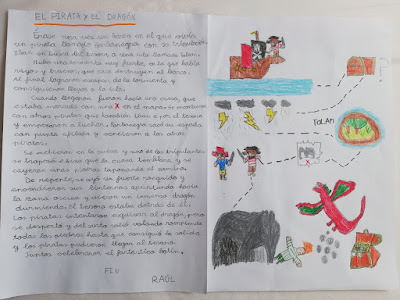 EL PIRATA Y EL DRAGÓN
Érase una vez un barco en el que vivía
un pirata llamado con su tripulación.
Iban en busca del tesoro a una isla llamada Tolan.
Hubo una tormenta muy fuerte, a la que había
rayos y truenos, que casi destruyen el barco.
Al final lograron escapar de la tormenta y
consiguieron llegar a la isla.
Cuando llegaron fueron hacia una cueva, que
estaba marcada con una X en el mapa. Se encontraron
con otros piratas que también iban a por el tesoro
y empezaron a luchar. con su espada
con punta afilada y vencieron a los otros
piratas.
Se metieron en la cueva y uno de los tripulantes
se tropezó e hizo que la cueva temblara, y se
cayeran unas piedras taponando el camino.
De repente se oyó un fuerte rugido y
encendieron sus linternas apuntando hacia
la zona oscura y vieron un enorme dragón
durmiendo. El tesoro estaba detrás de él.
Los piratas intentaron esquivar al dragón, pero
se despertó y del susto salió volando rompiendo
todas las piedras hasta que consiguió la salida
y los piratas pudieron llegar al tesoro.
Juntos celebraron el fantástico botín.
FIN
RAÚL
TOLAN
X